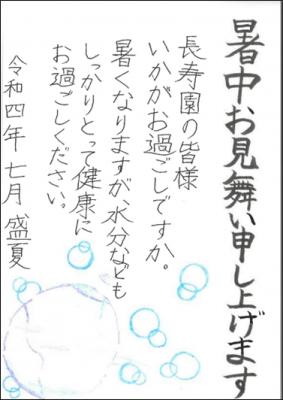 暑中お見舞い申し上げます
長寿園の皆様
いかがお過ごしですか。
暑くなりますが、水分なども
しっかりとって健康に
お過ごしください。
令和四年 七月 盛夏